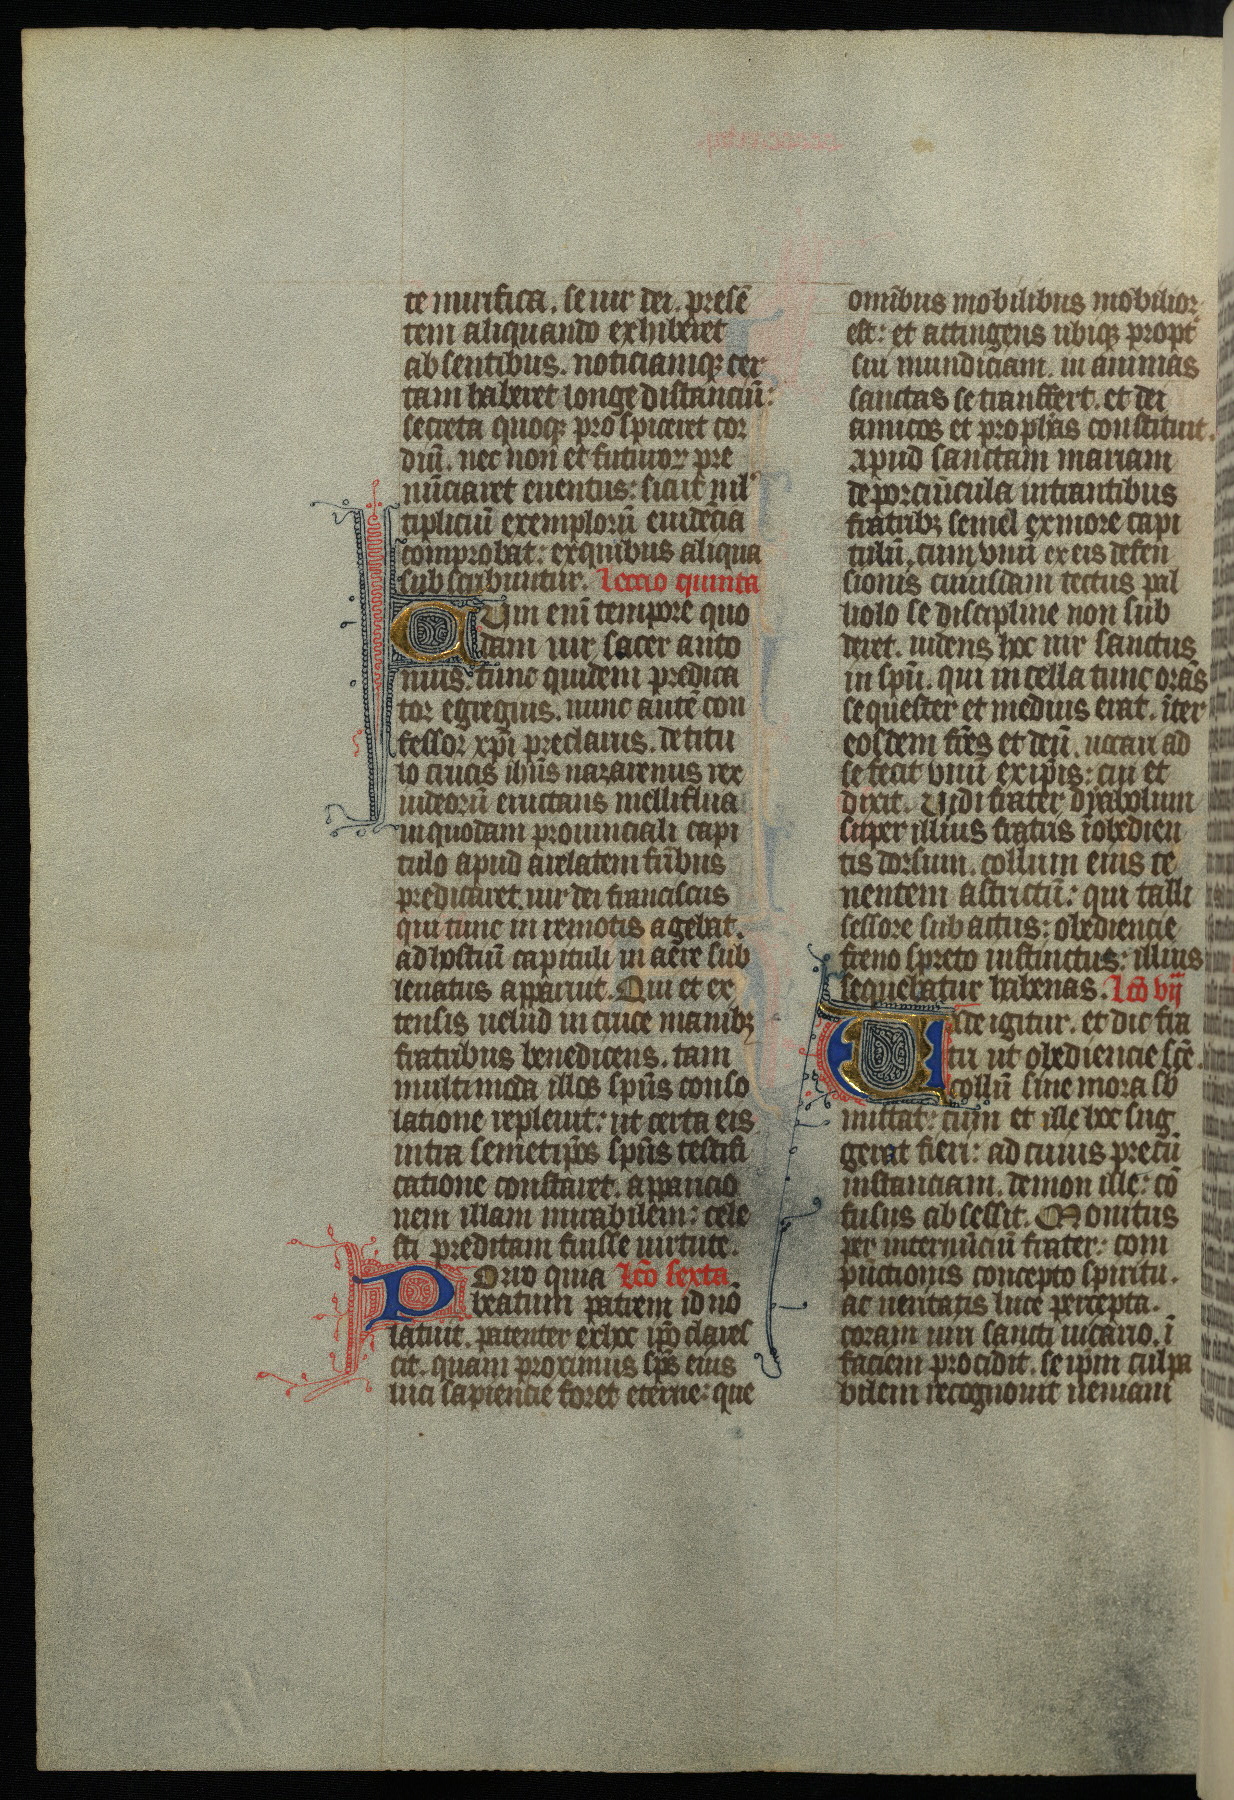 te mirifica. se vir dei. presē
tem aliquando exhiberet
absentibus. noticiamqꝫ cer
tam haberet longe distanciū:
secreta quoqꝫ prospiceret cor
diū. nec non et futuroꝝ pre
nūciaret euentus: sicut mul
tiplicium exemplorū euidēcia
comprobat: ex quibus aliqua
subscribuntur. Lectio quinta
Cum enī tempore quo
dam vir sacer anto
nius. tunc quidem predica
tor egregius. nunc autē con
fessor xp̄i preclarus. de titu
lo crucis ih̄us nazarenus rex
iudeorū eructans melliflua
in quodam prouinciali capi
tulo apud arelatem fr̄ibus
predicaret. vir dei franciscus
qui tunc in remotis agebat.
ad hostiū capituli in aere sub
leuatus apparuit. Qui et ex
tensis uelud in cruce manibꝫ
fratribus benedicens. tam
multimoda illos sp̄us conso
latione repleuit: ut certa eis
intra semetip̄os sp̄us testifi
catione constaret. apparicio
nem illam mirabilem: cele
sti preditam fuisse uirtute.
Porro quia Lc̄o sexta
beatum patrem id nō
latuit. patenter ex hoc ip̄o clares
cit. quam proximus sp̄s eius
luci sapiencie foret eterne: que
omībus mobilibus mobilior
est: et attingens ubiqꝫ propt̄
sui mundiciam. in animas
sanctas se transfert. et dei
amicos et proph̄as constituit.
Apud sanctam mariam
de porciūcula intrantibus
fratribꝫ semel ex more capi
tulū, cum vnū ex eis defen
sionis cuiusdam tectus pal
liolo se discipline non sub
deret. uidens hoc vir sanctus
in sp̄u. qui in cella tunc orās
sequester et medius erat. īter
eosdem fr̄es et deū. uocari ad
se fecit vnū ex ip̄is: cui et
dixit. Vidi frater dyabolum
super illius fratris īobedien
tis dorsum. collum eius te
nentem astrictū: qui talli
sessore subactus: obediencie
freno spreto instinctus: illius
sequebatur habenas. Lc̄o vij
Vade igitur. et dic fra
tri ut obediencie sc̄e.
collū sine mora sb̄
mittat: cum et ille hoc sug
gerat fieri: ad cuius precū
instanciam. demon ille: cō
fusus abscessit. Monitus
per internūciū frater: com
pūctionis concepto spiritu.
ac ueritatis luce percepta.
coram viri sancti uicario. ī
faciem procidit. se ip̄m culpa
bilem recognouit ueniam